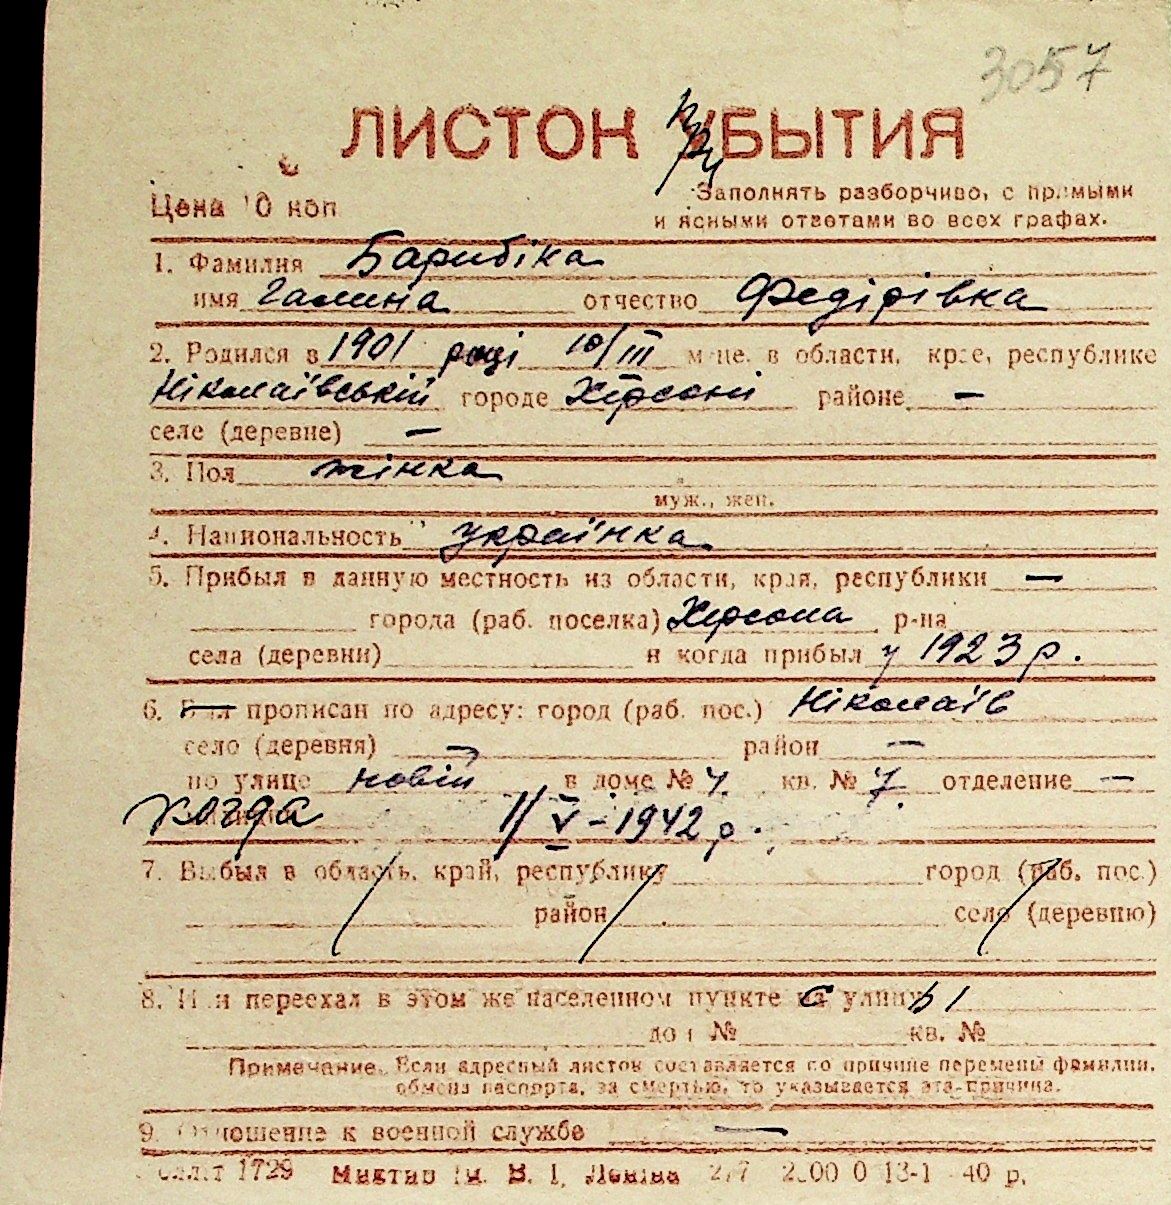 3057
ЛИСТОК при УБЫТИЯ
Заполнять разборчиво, с прямыми
Цена 10 коп
и ясными ответами во всех графах.
1. Фамилия Барибіна
имя Галина отчество Федірівка
2. Родился в 1901 році 10/III м-це. в области, крае, республике
Ніколаївській городе Херсоні районе —
селе (деревне) —
3. Пол жінка
муж., жен.
4. Национальность українка
5. Прибыл в данную местность из области, края, республики —
города (раб. поселка) Херсона р-на
села (деревни) и когда прибыл у 1923 р.
6. прописан по адресу: город (раб. пос.) Ніколаїв
село (деревня) — район —
по улице новій в доме № 4 кв. № 7 отделение —
когда 1/V-1942 р.
7. Выбыл в область, край, республику город (раб. пос.)
район село (деревню)
8. Или переехал в этом же населенном пункте с улицы
дом № кв. №
Примечание. Если адресный листок составляется по причине перемены фамилии,
обмена паспорта, за смертью, то указывается эта причина.
9. Отношение к военной службе —
1729 им. В. І. Леніна 40 р.